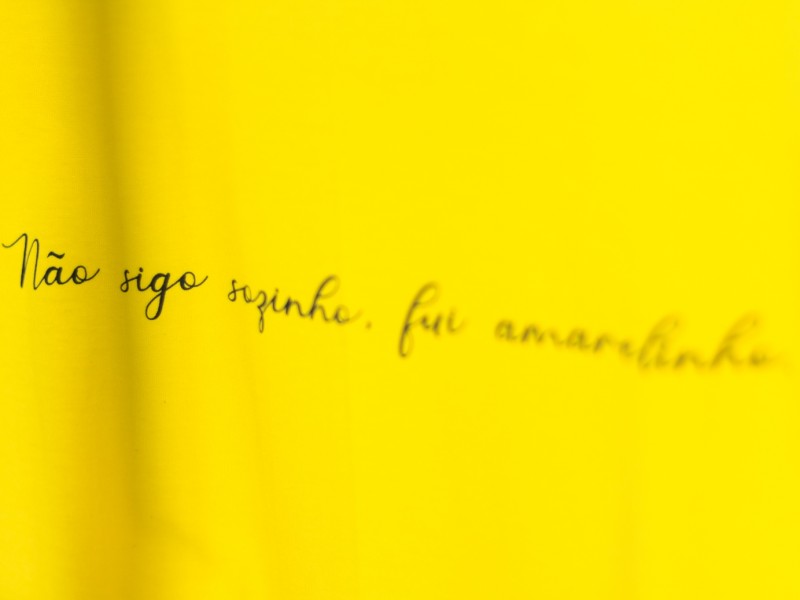 Não sigo sozinho, fui amarelinho